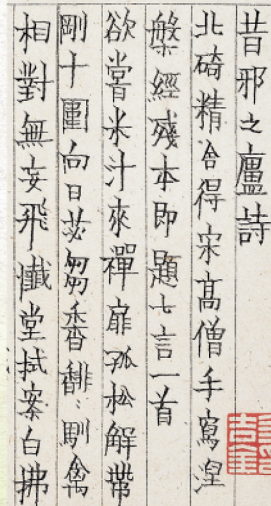 昔邪之廬詩
北碕精舍得宋髙僧手寫涅
槃經殘本即題七言一首
欲嘗米汁來禪扉孤松解帶
剛十圍向日苾芻香馡〻馴禽
相對無妄飛懺堂拭案白拂